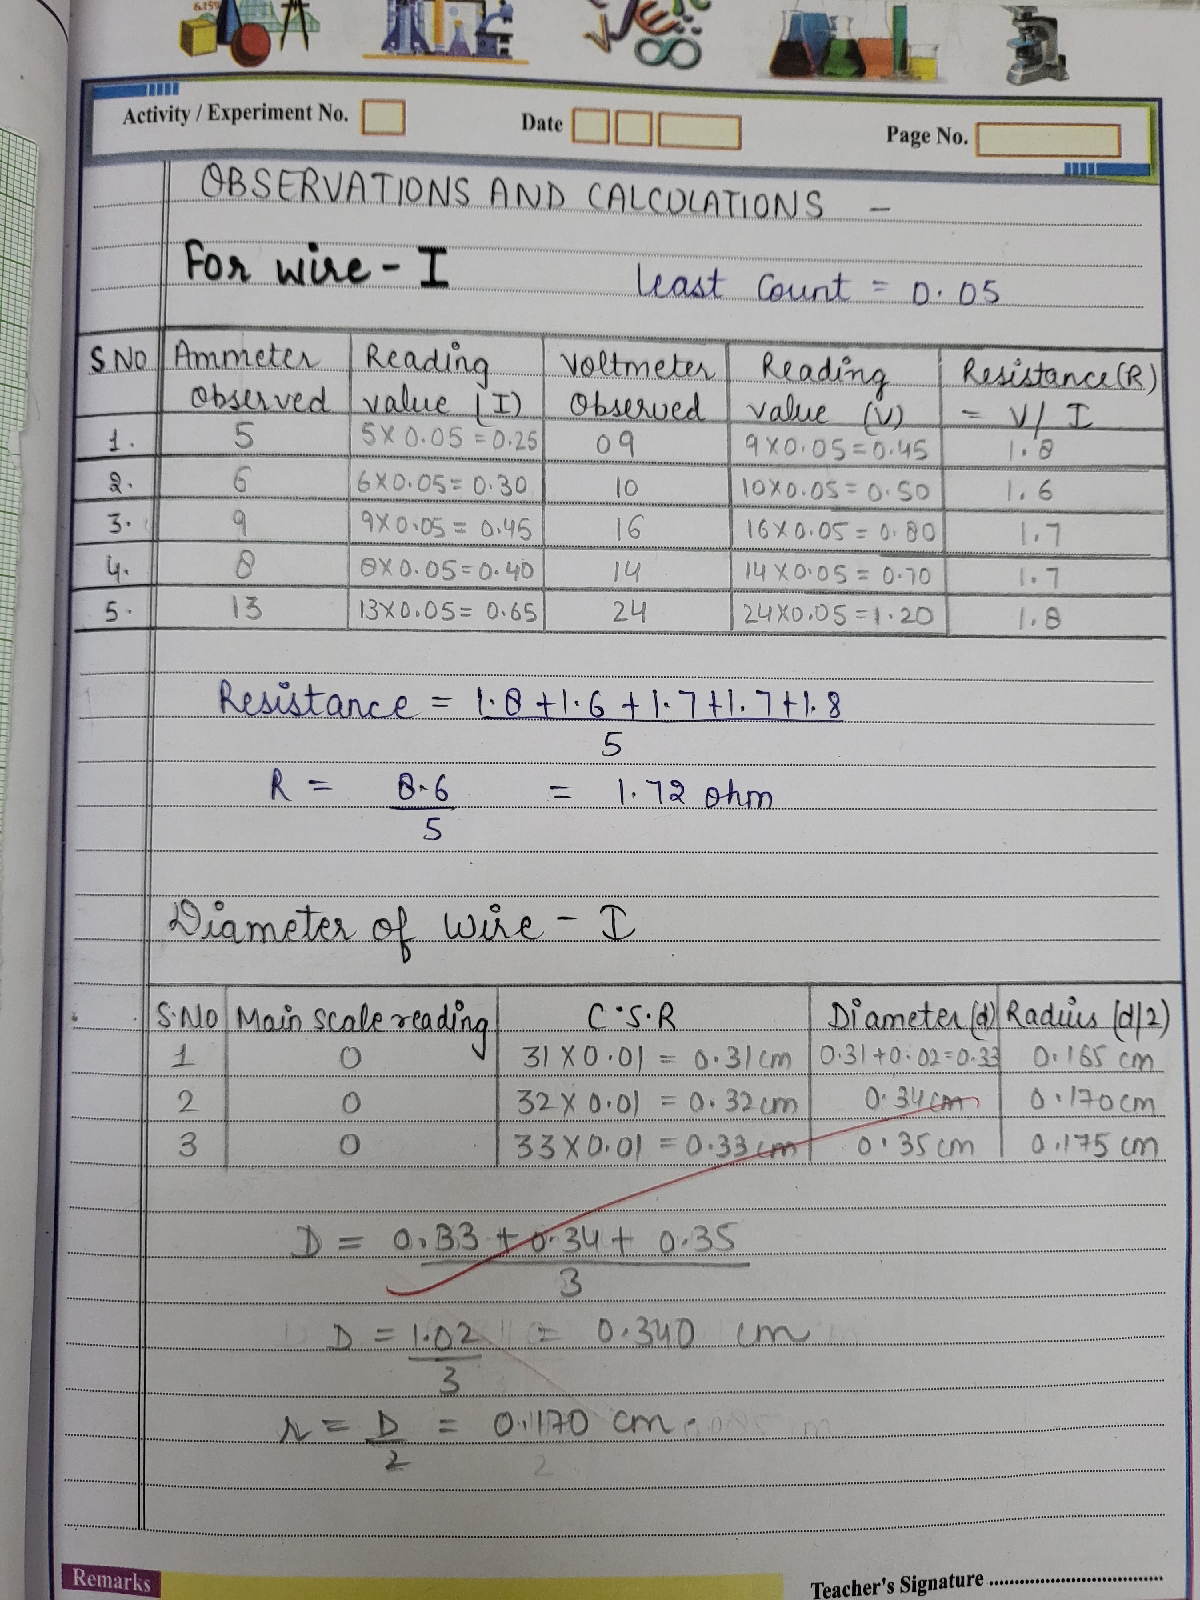 Activity / Experiment No.
Date
Page No.
OBSERVATIONS AND CALCULATIONS -
For wire - I
Least Count = 0.05
S NO Ammeter Observed Reading value (I) Voltmeter Observed Reading value (V) Resistance (R) = V/I
1. 5 5 X 0.05 = 0.25 09 9 X 0.05 = 0.45 1.8
2. 6 6 X 0.05 = 0.30 10 10 X 0.05 = 0.50 1.6
3. 9 9 X 0.05 = 0.45 16 16 X 0.05 = 0.80 1.7
4. 8 8 X 0.05 = 0.40 14 14 X 0.05 = 0.70 1.7
5. 13 13 X 0.05 = 0.65 24 24 X 0.05 = 1.20 1.8
Resistance = 1.8 + 1.6 + 1.7 + 1.7 + 1.8
5
R = 8.6 = 1.72 ohm
5
Diameter of wire - I
S.NO Main scale reading C.S.R Diameter (d) Radius (d/2)
1 0 31 X 0.01 = 0.31 cm 0.31 + 0.02 = 0.33 0.165 cm
2 0 32 X 0.01 = 0.32 cm 0.34 cm 0.170 cm
3 0 33 X 0.01 = 0.33 cm 0.35 cm 0.175 cm
D = 0.33 + 0.34 + 0.35
3
D = 1.02 = 0.340 cm
3
r = D = 0.170 cm.
2
Remarks
Teacher's Signature